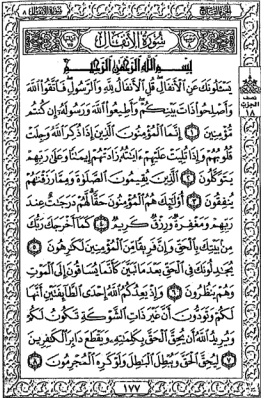 سورة الأنفال
بسم الله الرحمن الرحيم
يسـٔلونك عن الأنفال قل الأنفال لله والرسول فاتقوا الله
وأصلحوا ذات بينكم وأطيعوا الله ورسوله إن كنتم
مؤمنين ١ إنما المؤمنون الذين إذا ذكر الله وجلت
قلوبهم وإذا تليت عليهم ءايته زادتهم إيمنا وعلى ربهم
يتوكلون ٢ الذين يقيمون الصلوة ومما رزقنهم
ينفقون ٣ أولئك هم المؤمنون حقا لهم درجت عند
ربهم ومغفرة ورزق كريم ٤ كما أخرجك ربك
من بيتك بالحق وإن فريقا من المؤمنين لكرهون ٥
يجدلونك في الحق بعدما تبين كأنما يساقون إلى الموت
وهم ينظرون ٦ وإذ يعدكم الله إحدى الطائفتين أنها
لكم وتودون أن غير ذات الشوكة تكون لكم
ويريد الله أن يحق الحق بكلمته ويقطع دابر الكفرين
٧ ليحق الحق ويبطل البطل ولو كره المجرمون ٨
١٧٧